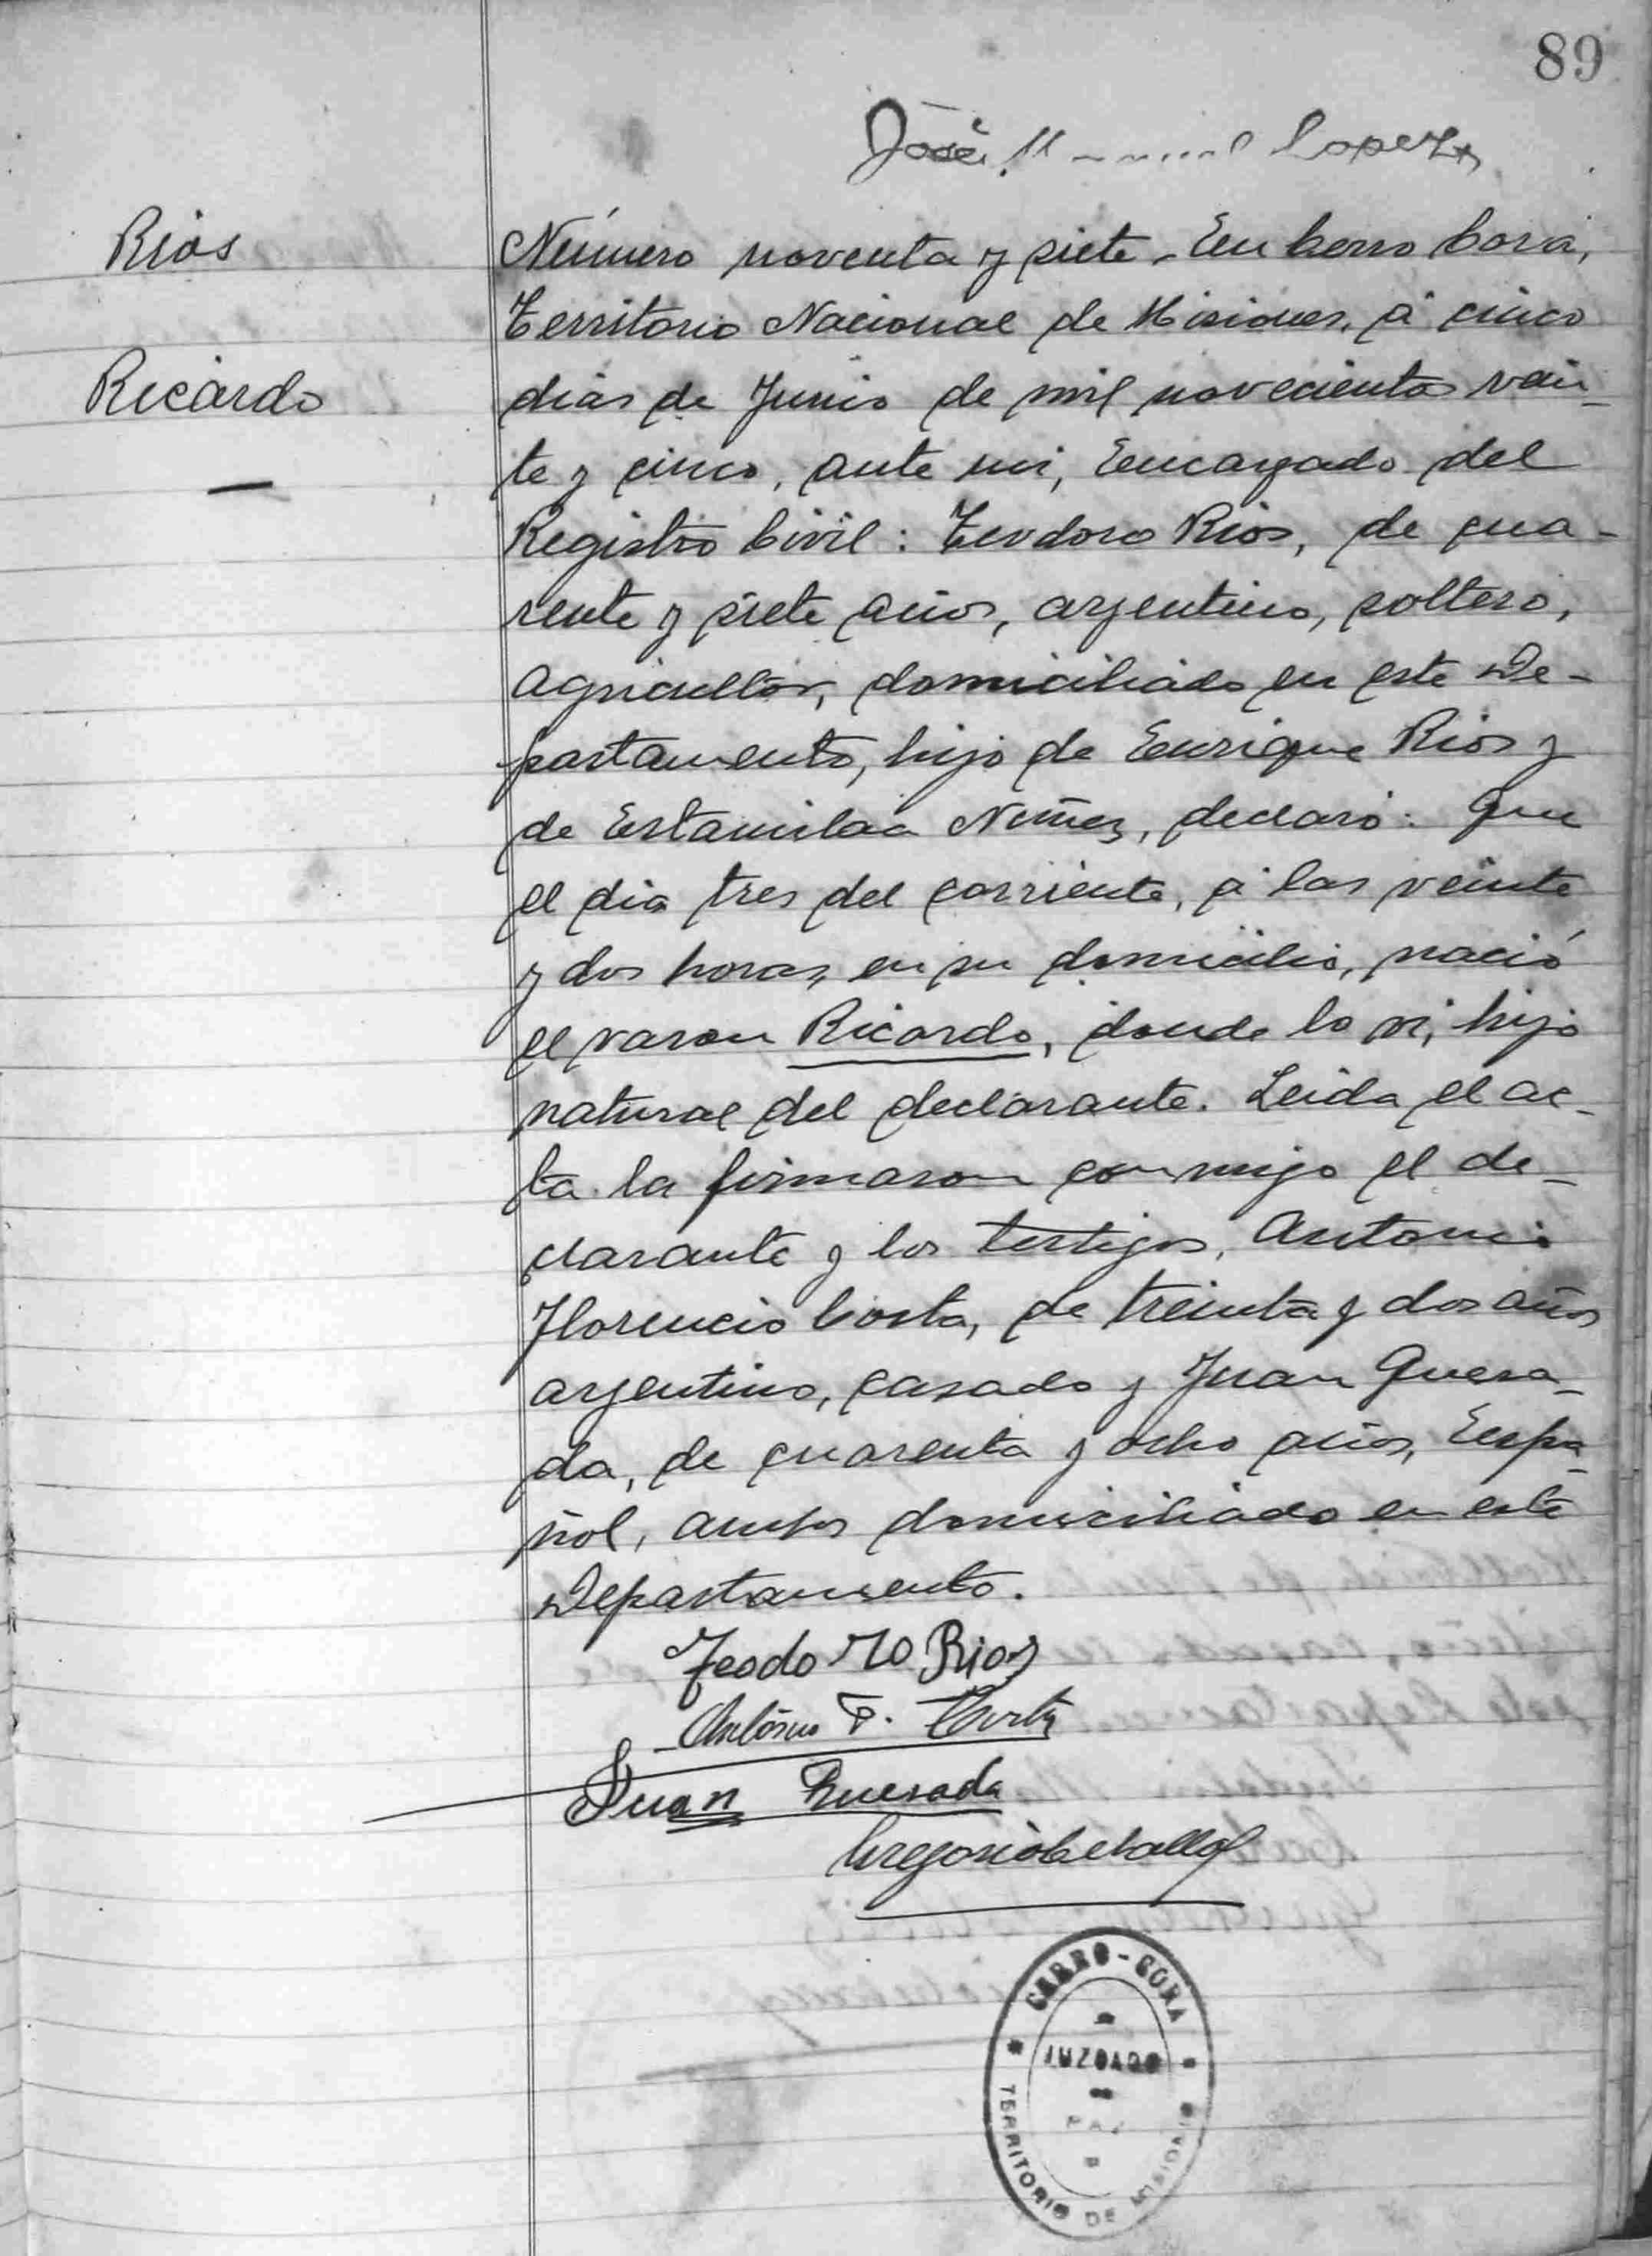 89
José Manuel Lopez
Rios
Ricardo
Número noventa y siete. En Cerro Corá,
Territorio Nacional de Misiones, á cinco
dias de Junio de mil novecientos vein-
te y cinco, ante mi, Encargado del
Registro Civil: Teodoro Rios, de cua-
renta y siete años, argentino, soltero,
agricultor, domiciliado en este De-
partamento, hijo de Enrique Rios y
de Estanislaa Nuñez, declaró: Que
el dia tres del corriente, á las veinte
y dos horas, en su domicilio, nació
el varon Ricardo, donde lo vi, hijo
natural del declarante. Leida el ac-
ta la firmaron conmigo el de-
clarante y los testigos, Antonio
Florencio Costa, de treinta y dos años
argentino, casado y Juan Quesa-
da, de cuarenta y ocho años, Espa-
ñol, ambos domiciliado en este
Departamento.
Teodoro Rios
Antonio F. Costa
Juan Quesada
Gregorio Ceballos
CERRO-CORA
JUZGADO
PAZ
TERRITORIO DE MISIONES